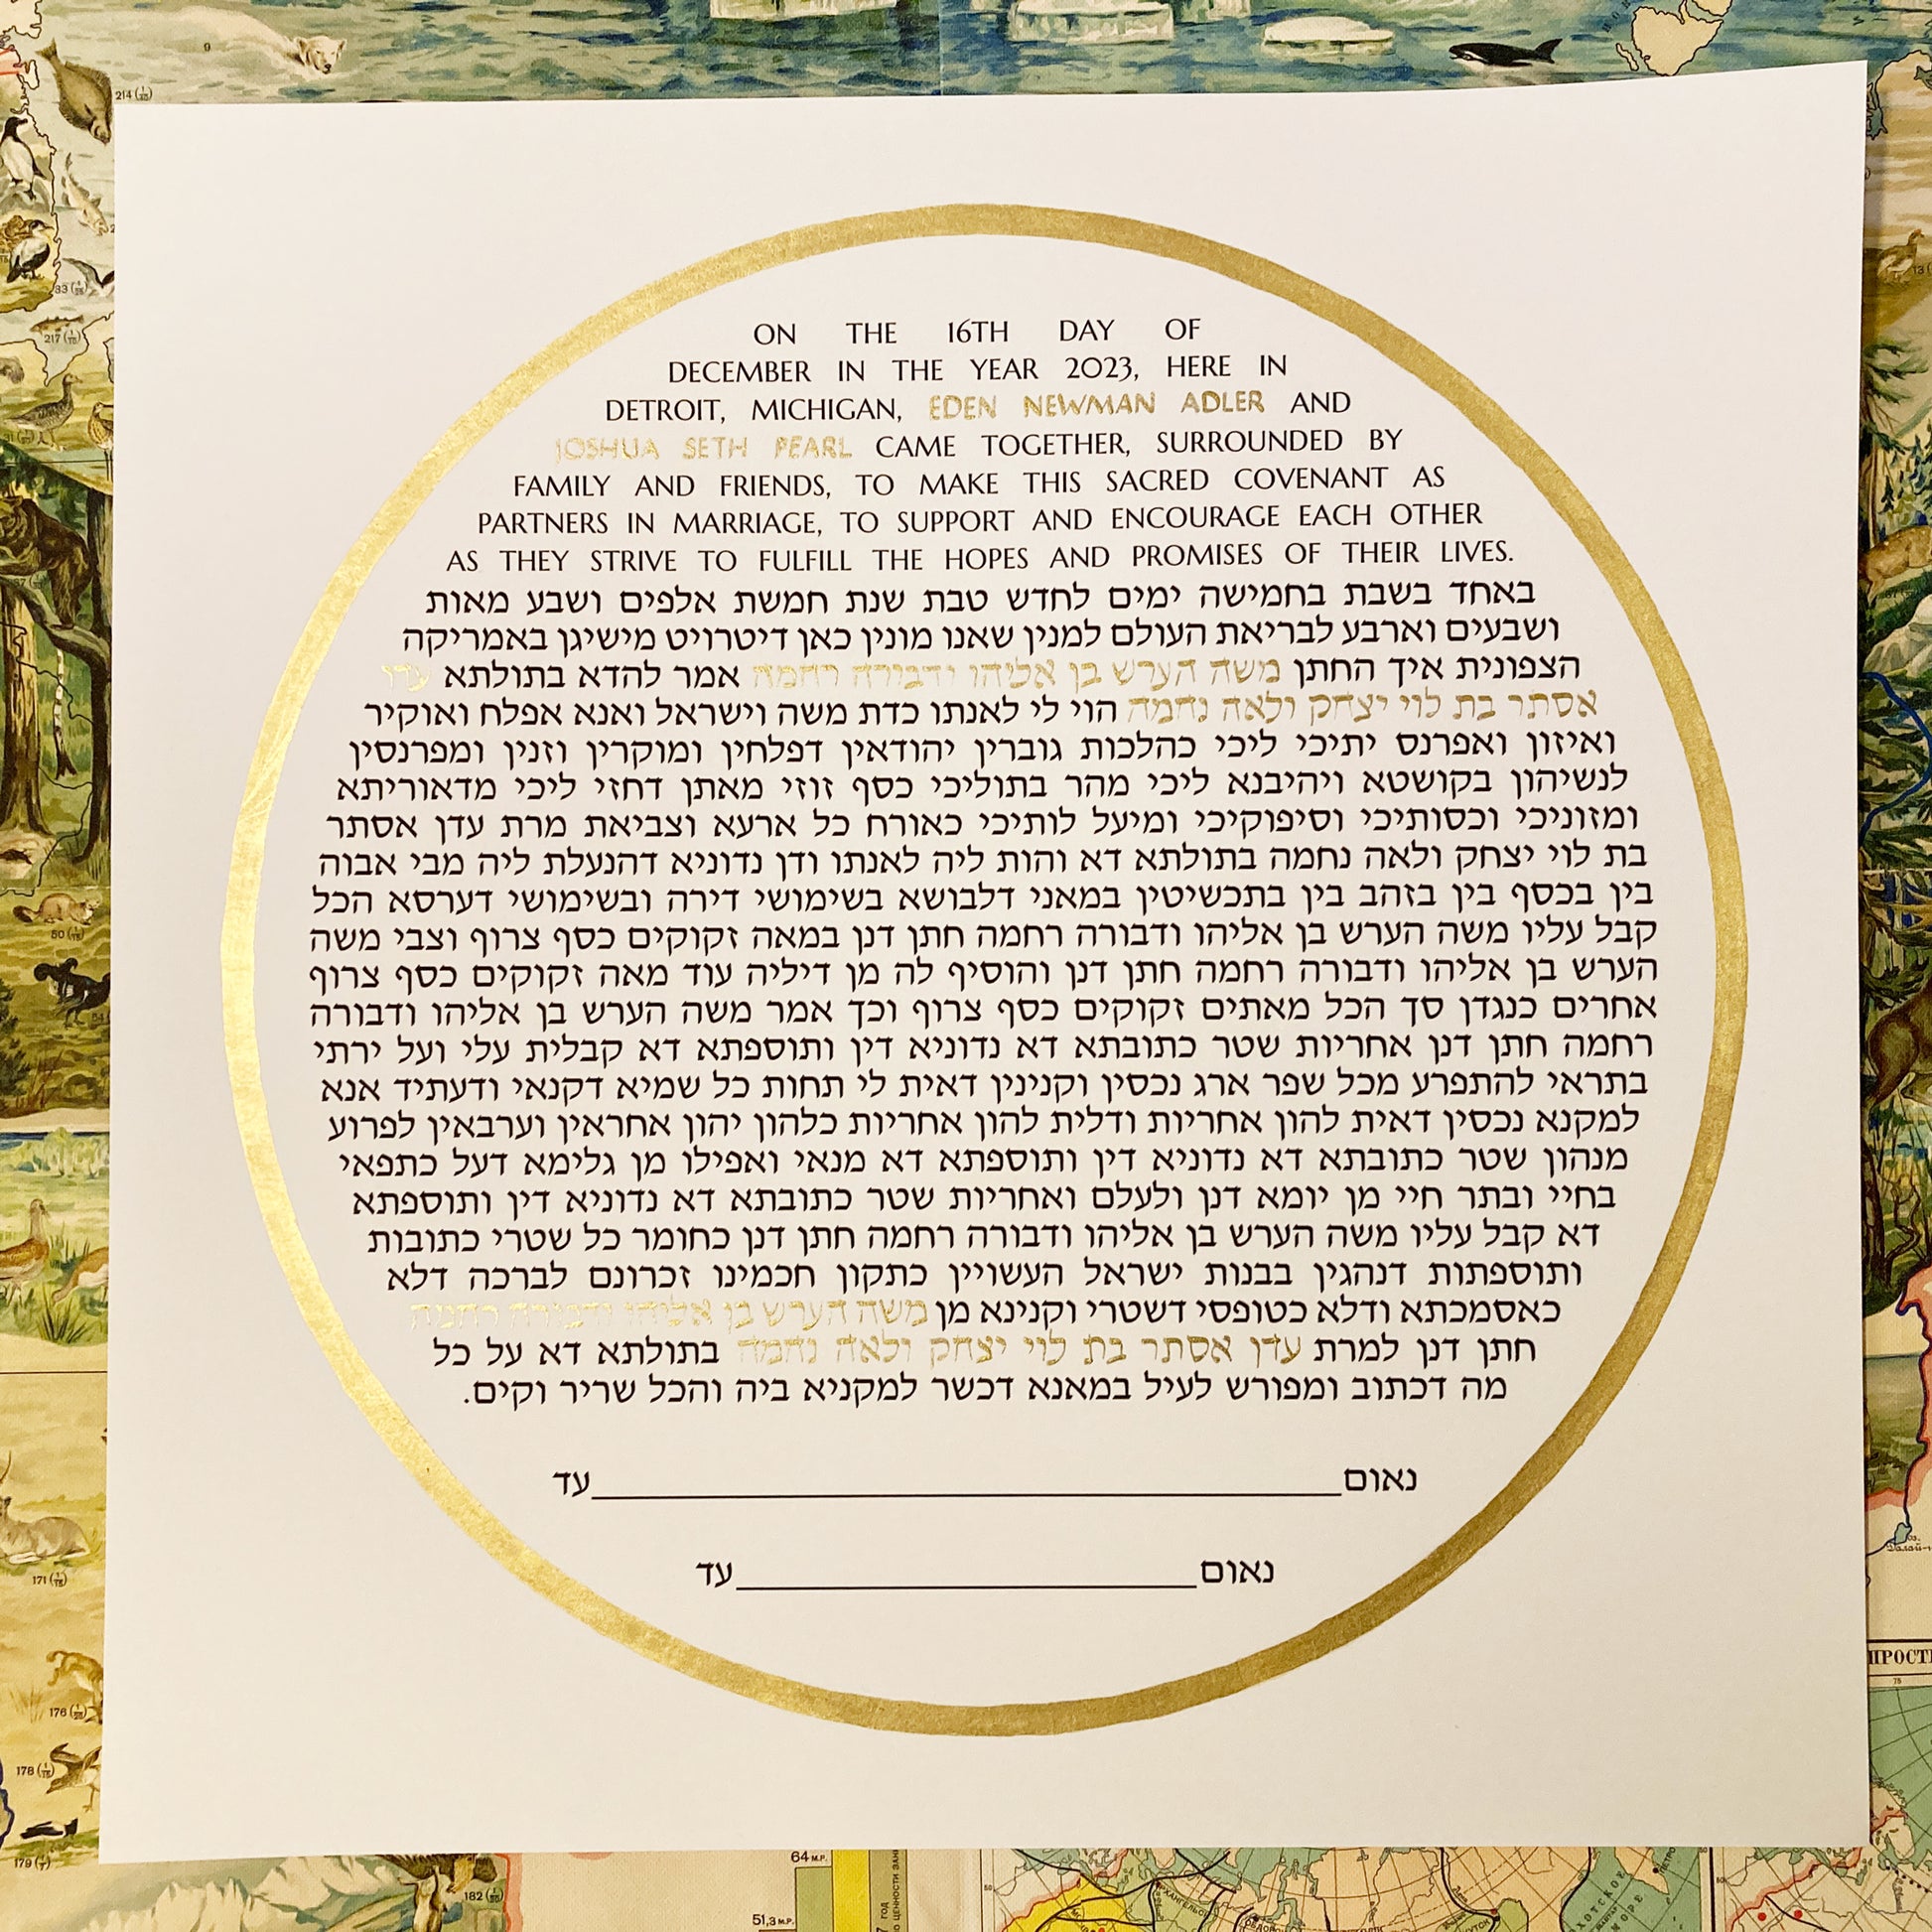 ON THE 16TH DAY OF
DECEMBER IN THE YEAR 2023, HERE IN
DETROIT, MICHIGAN, EDEN NEWMAN ADLER AND
JOSHUA SETH PEARL CAME TOGETHER, SURROUNDED BY
FAMILY AND FRIENDS, TO MAKE THIS SACRED COVENANT AS
PARTNERS IN MARRIAGE, TO SUPPORT AND ENCOURAGE EACH OTHER
AS THEY STRIVE TO FULFILL THE HOPES AND PROMISES OF THEIR LIVES.
באחד בשבת בחמישה ימים לחדש טבת שנת חמשת אלפים ושבע מאות
ושבעים וארבע לבריאת העולם למנין שאנו מונין כאן דיטרויט מישיגן באמריקה
הצפונית איך החתן משה הערש בן אליהו ודבורה רחמה אמר להדא בתולתא עדן
אסתר בת לוי יצחק ולאה נחמה הוי לי לאנתו כדת משה וישראל ואנא אפלח ואוקיר
ואיזון ואפרנס יתיכי ליכי כהלכות גוברין יהודאין דפלחין ומוקרין וזנין ומפרנסין
לנשיהון בקושטא ויהיבנא ליכי מהר בתוליכי כסף זוזי מאתן דחזי ליכי מדאוריתא
ומזוניכי וכסותיכי וסיפוקיכי ומיעל לותיכי כאורח כל ארעא וצביאת מרת עדן אסתר
בת לוי יצחק ולאה נחמה בתולתא דא והות ליה לאנתו ודן נדוניא דהנעלת ליה מבי אבוה
בין בכסף בין בזהב בין בתכשיטין במאני דלבושא בשימושי דירה ובשימושי דערסא הכל
קבל עליו משה הערש בן אליהו ודבורה רחמה חתן דנן במאה זקוקים כסף צרוף וצבי משה
הערש בן אליהו ודבורה רחמה חתן דנן והוסיף לה מן דיליה עוד מאה זקוקים כסף צרוף
אחרים כנגדן סך הכל מאתים זקוקים כסף צרוף וכך אמר משה הערש בן אליהו ודבורה
רחמה חתן דנן אחריות שטר כתובתא דא נדוניא דין ותוספתא דא קבלית עלי ועל ירתי
בתראי להתפרע מכל שפר ארג נכסין וקנינין דאית לי תחות כל שמיא דקנאי ודעתיד אנא
למקנא נכסין דאית להון אחריות ודלית להון אחריות כלהון יהון אחראין וערבאין לפרוע
מנהון שטר כתובתא דא נדוניא דין ותוספתא דא מנאי ואפילו מן גלימא דעל כתפאי
בחיי ובתר חיי מן יומא דנן ולעלם ואחריות שטר כתובתא דא נדוניא דין ותוספתא
דא קבל עליו משה הערש בן אליהו ודבורה רחמה חתן דנן כחומר כל שטרי כתובות
ותוספתות דנהגין בבנות ישראל העשויין כתקון חכמינו זכרונם לברכה דלא
כאסמכתא ודלא כטופסי דשטרי וקנינא מן משה הערש בן אליהו ודבורה רחמה
חתן דנן למרת עדן אסתר בת לוי יצחק ולאה נחמה בתולתא דא על כל
מה דכתוב ומפורש לעיל במאנא דכשר למקניא ביה והכל שריר וקים.
נאום____________עד
נאום____________עד
9
214
33
217
50
171
176
178
179
182
64 М.Р.
51,3 М.Р.
75
50